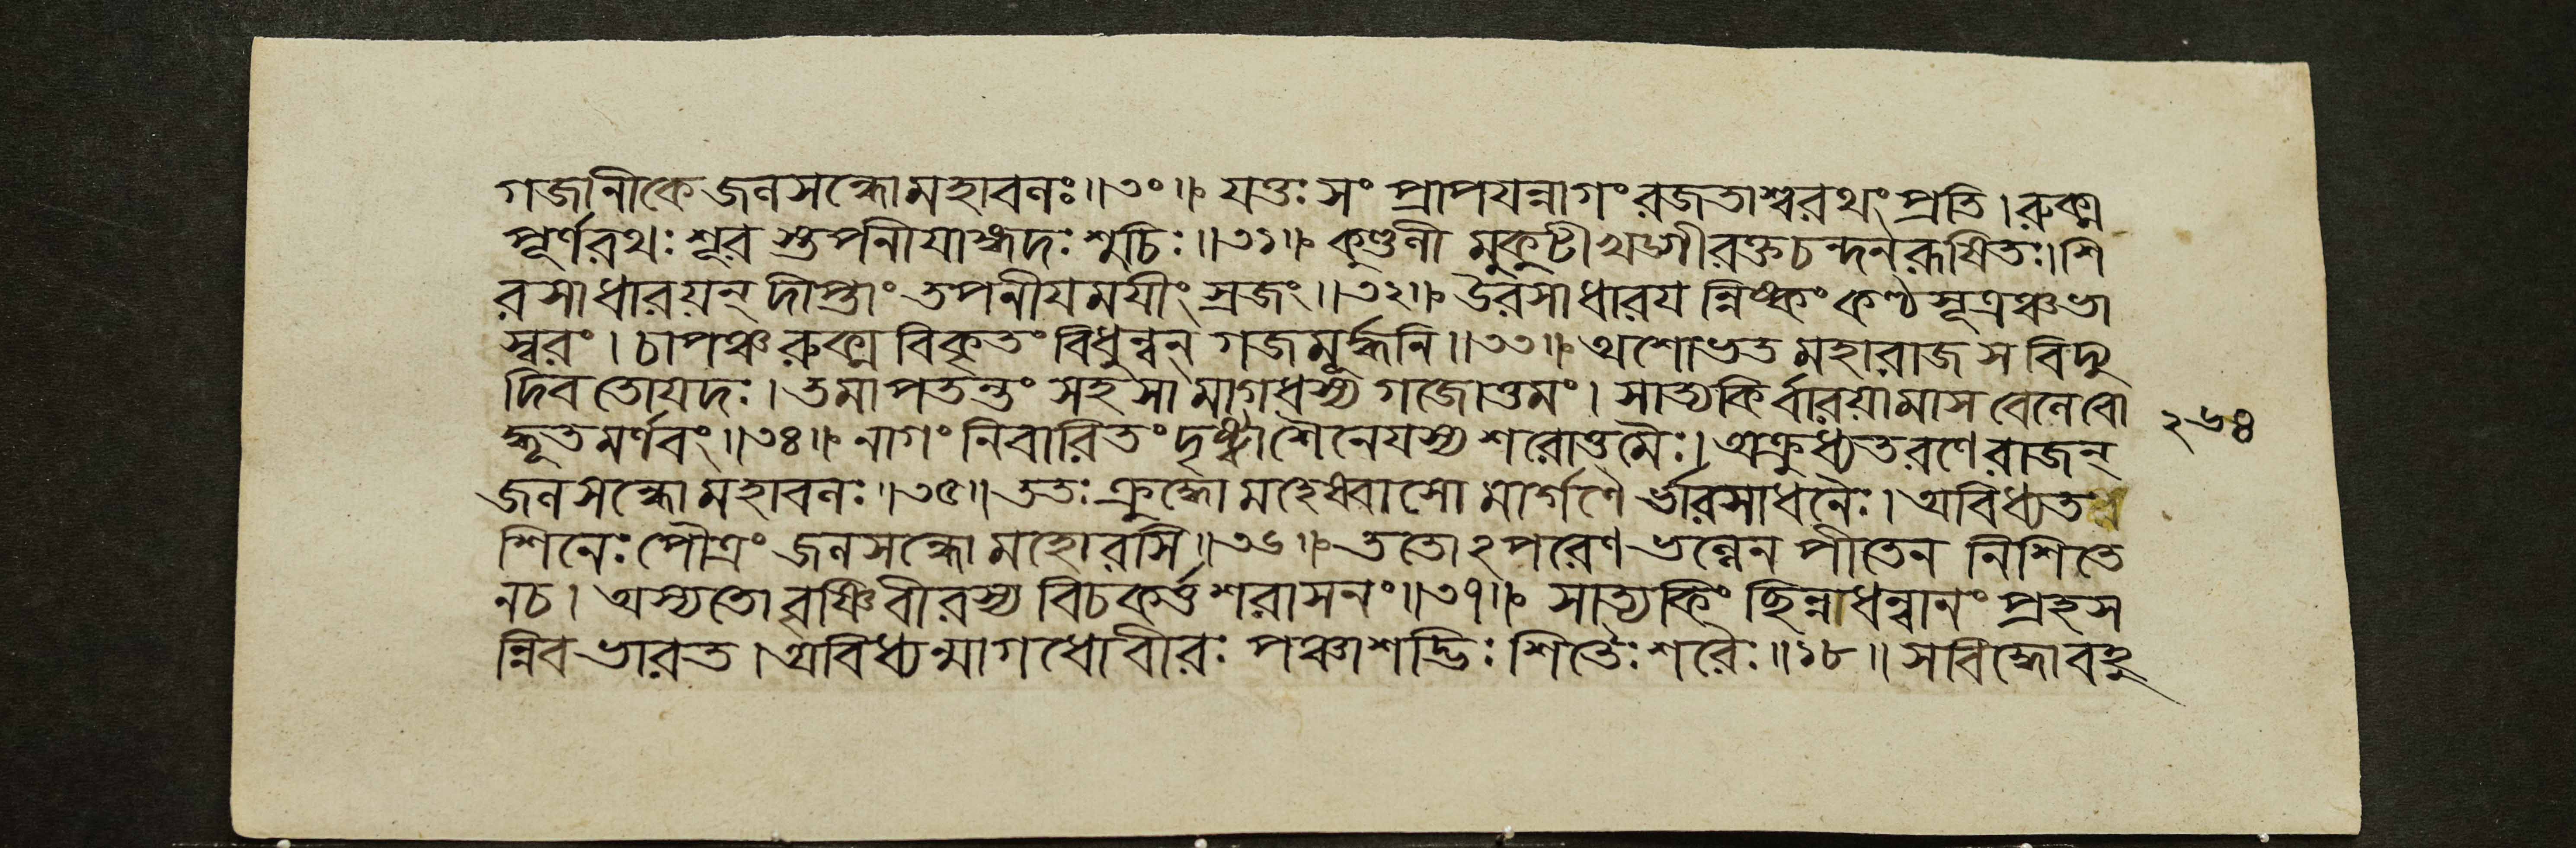 গজানীকে জলসন্ধো মহাবলঃ॥৩০॥ যত্তঃ সং প্রাপযন্নাগং রজতাশ্বরথং প্রতি। রুক্ম
পূর্ণরথঃ শূর স্তপনীযাঙ্গদঃ শুচিঃ॥৩১॥ কুণ্ডলী মুকুটী খড়্গী রক্তচন্দনরূষিতঃ। শি
রসা ধারয়ন্ দীপ্তাং তপনীযমযীং স্রজং॥৩২॥ উরসা ধারয ন্নিষ্কং কণ্ঠসূত্রঞ্চ ভা
স্বরং। চাপঞ্চ রুক্ম বিকৃতং বিধুন্বন্ গজমূর্দ্ধনি॥৩৩॥ অশোভত মহারাজ স বিদ্যু
দিব তোযদঃ। তমাপতন্তং সহসা মাগধস্য গজোত্তমং। সাত্যকির্বারয়ামাস বেলেবো
দ্ধূতমর্ণবং॥৩৪॥ নাগং নিবারিতং দৃষ্ট্বা শৈনেযস্য শরোত্তমৈঃ। অক্রুধ্যত রণে রাজন্
জলসন্ধো মহাবলঃ॥৩৫॥ ততঃ ক্রুদ্ধো মহেষ্বাসো মার্গণৈ র্ভারসাধনৈঃ। অবিধ্যত
শিনেঃ পৌত্রং জলসন্ধো মহোরসি॥৩৬॥ ততোঽপরেণ ভল্লেন পীতেন নিশিতে
ন চ। অস্যতো বৃষ্ণিবীরস্য বিচকর্ত্ত শরাসনং॥৩৭॥ সাত্যকিং ছিন্নধন্বানং প্রহস
ন্নিব ভারত। অবিধ্যন্মাগধো বীরঃ পঞ্চাশদ্ভিঃ শিতৈঃ শরৈঃ॥১৮॥ স বিদ্ধো বহু
২৬৪